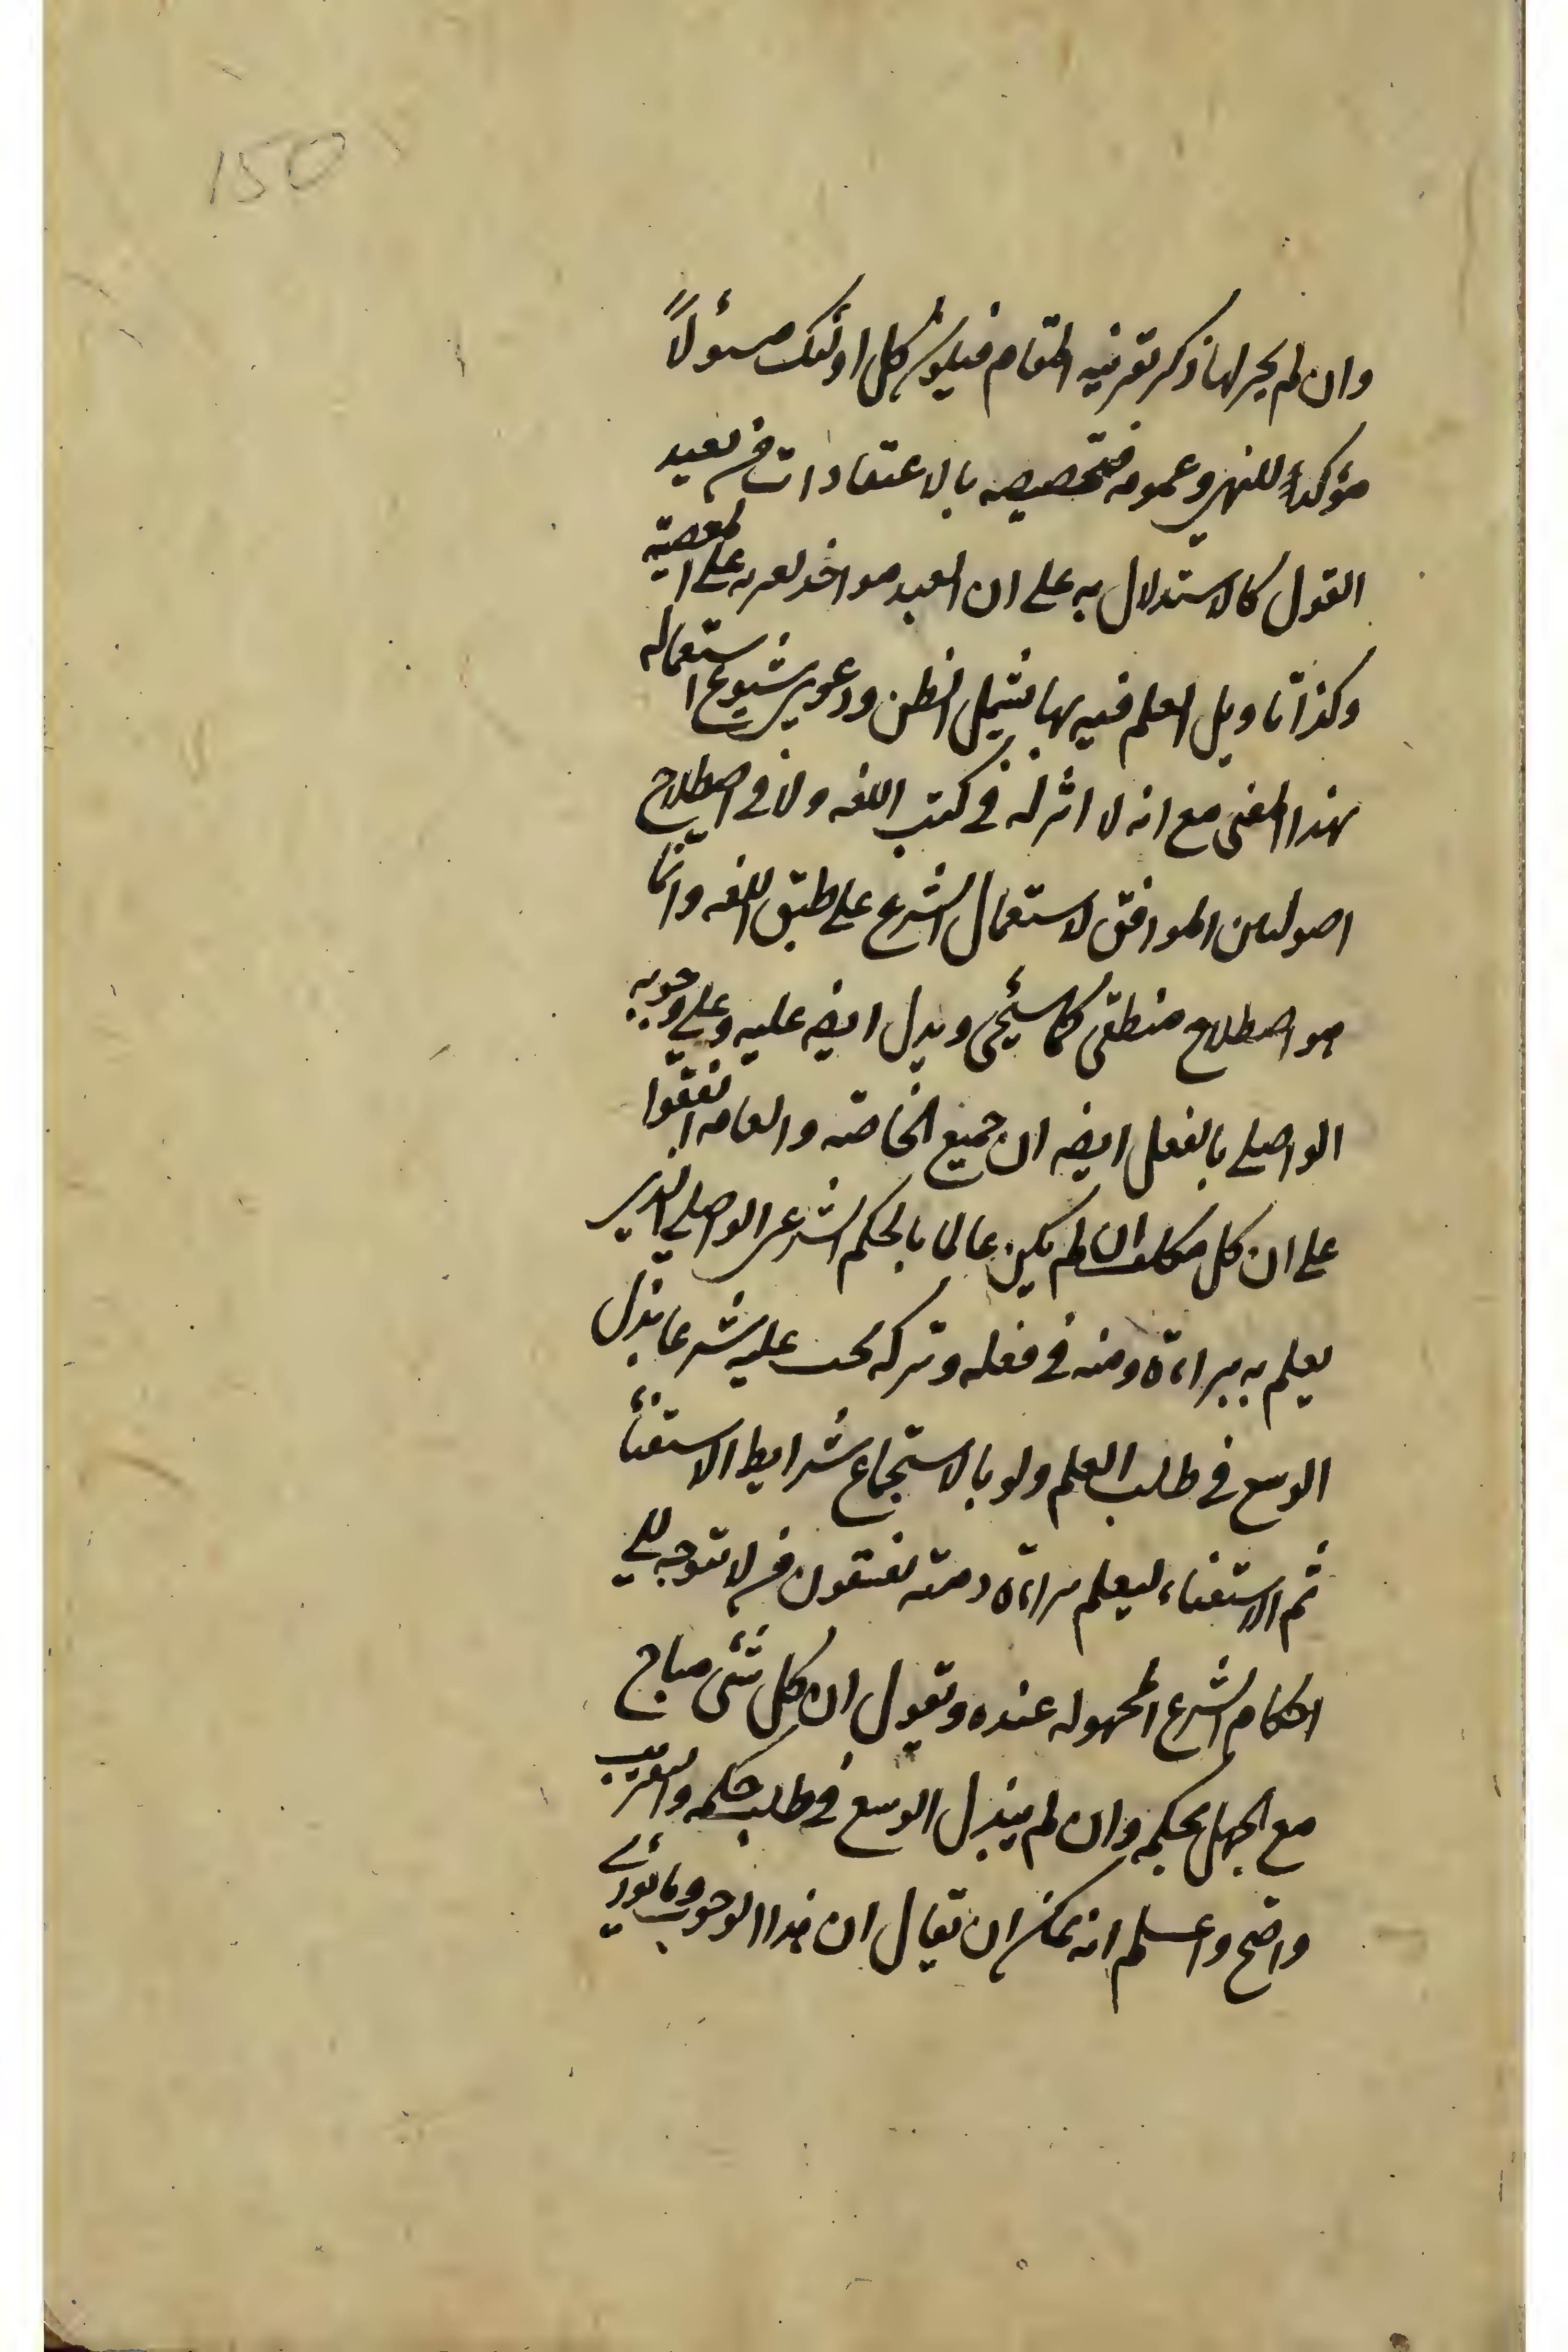 150
وان لم يجر لها ذكر بقرينه المقام فيكون كل اولئك مسؤلاً
مؤكداً للنهي وعمومه فتخصيصه بالاعتقادات من بعيد
القول كالاستدلال به على ان العبد مواخذ بعزمه على المعصية
وكذا تاويل العلم فيه بما يشمل الظن ودعوى شيوع استعماله
بهذا المعنى مع انه لا اثر له في كتب اللغه ولا في اصطلاح
اصوليين الموافق لاستعمال الشرع على طبق اللغه وانما
هو اصطلاح منطقى كما سيجئ ويدل ايضه عليه وعلى وجوبه
الواصلي بالفعل ايضه ان جميع الخاصة والعامه اتفقوا
على ان كل مكلف ان لم يكن عالما بالحكم الشرعى الواصلي الذى
يعلم به ببراءة ذمته في فعله وتركه يجب عليه شرعا بذل
الوسع في طلب العلم ولو بالاستجماع شرايط الاستفتاء
ثم الاستفتاء ليعلم براءة ذمته فيقول من لا يتوجه الى
احكام الشرع المجهوله عنده ويقول ان كل شئ مباح
مع الجهل بحكمه وان لم يبذل الوسع في طلب حكمه والتقريب
واضح واعلم انه يمكن ان يقال ان هذا الوجوب وما يؤدى